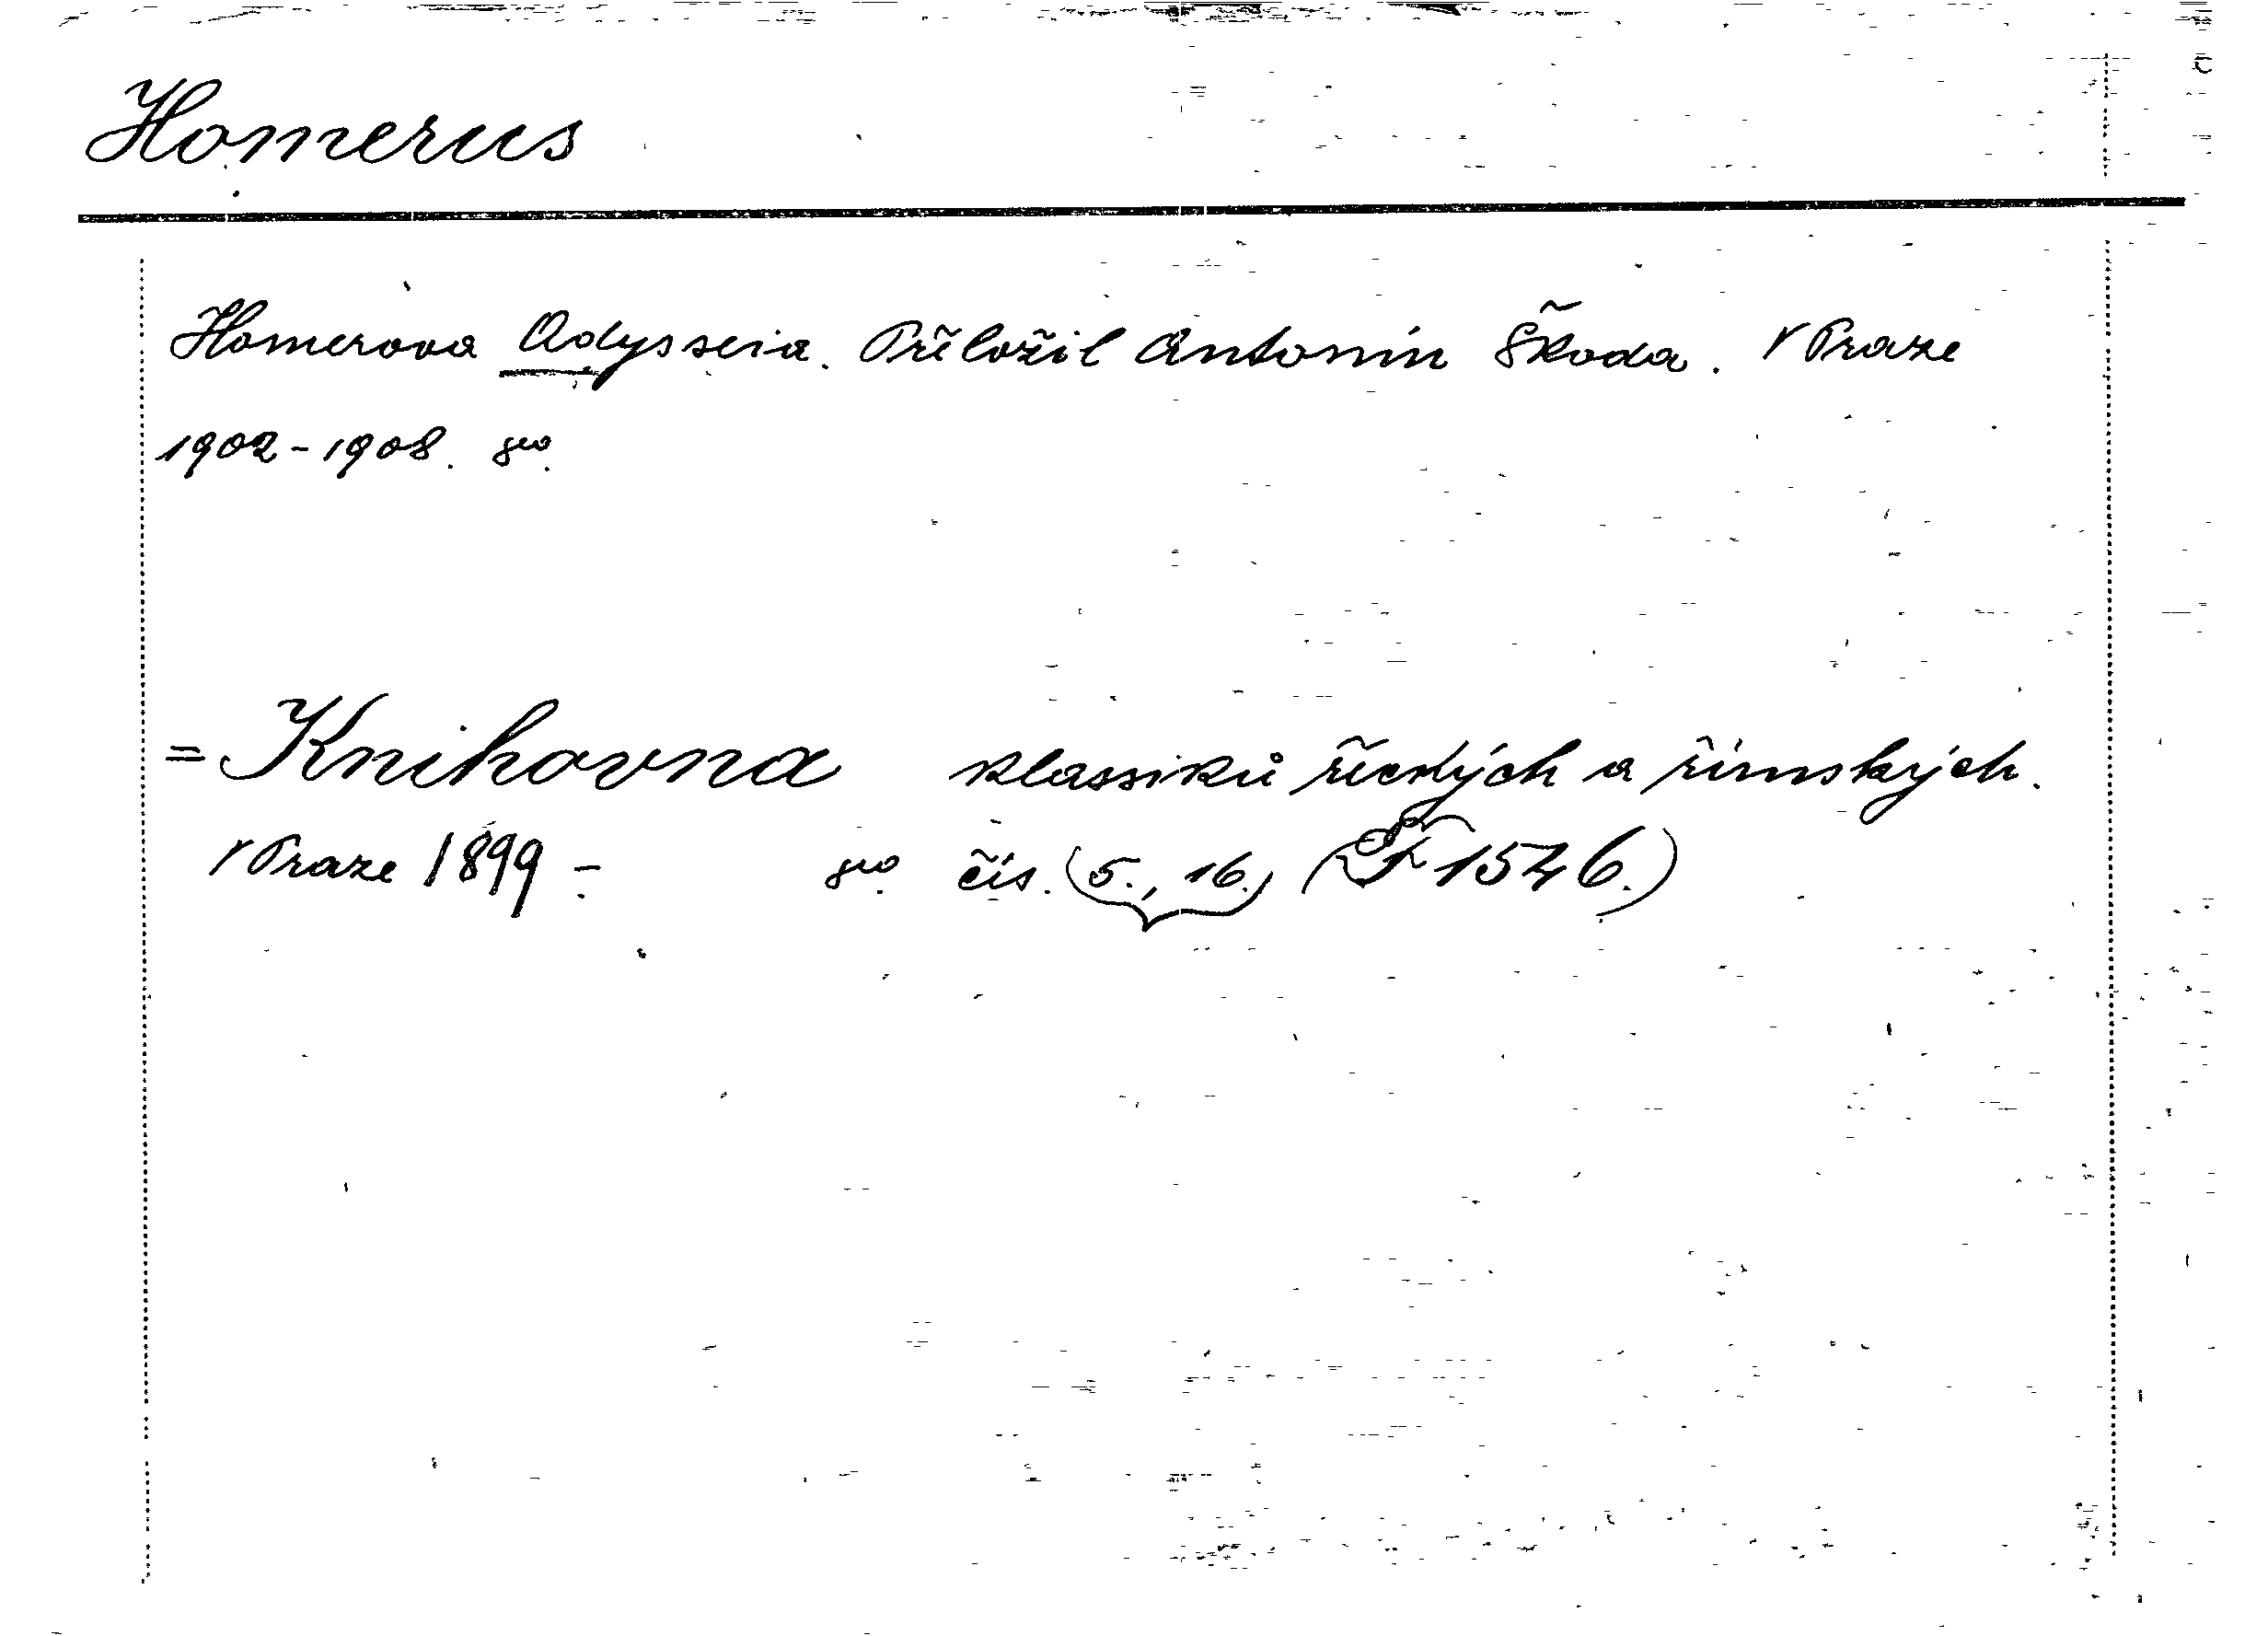 Homerus
Homerova Odysseia. Přeložil Antonín Škoda. V Praze
1902-1908. 8vo.
= Knihovna klassiků řeckých a římských.
V Praze 1899 - 8vo. čís. (5., 16.) (F 1546.)